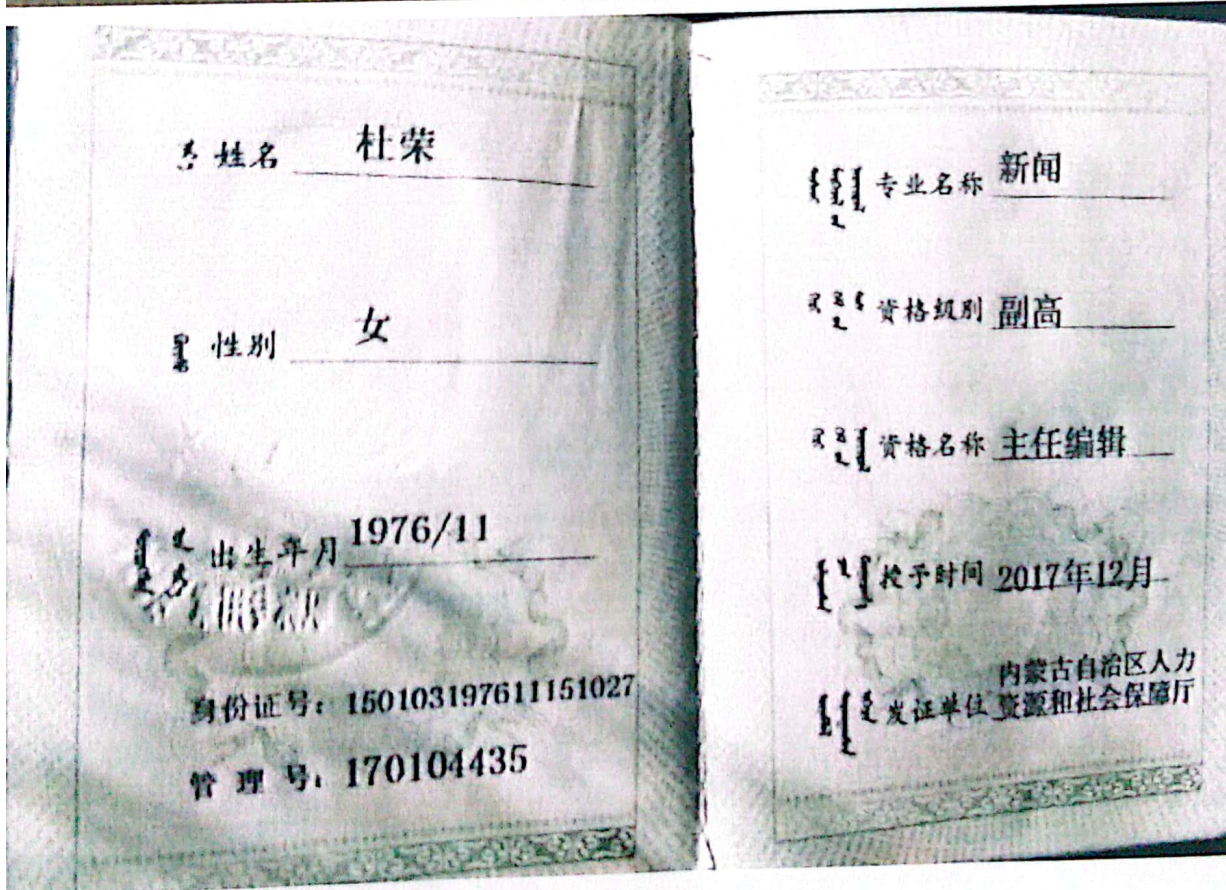 姓名 杜荣
性别 女
出生年月 1976/11
身份证号：150103197611151027
管理号：170104435
专业名称 新闻
资格级别 副高
资格名称 主任编辑
授予时间 2017年12月
发证单位 内蒙古自治区人力
资源和社会保障厅